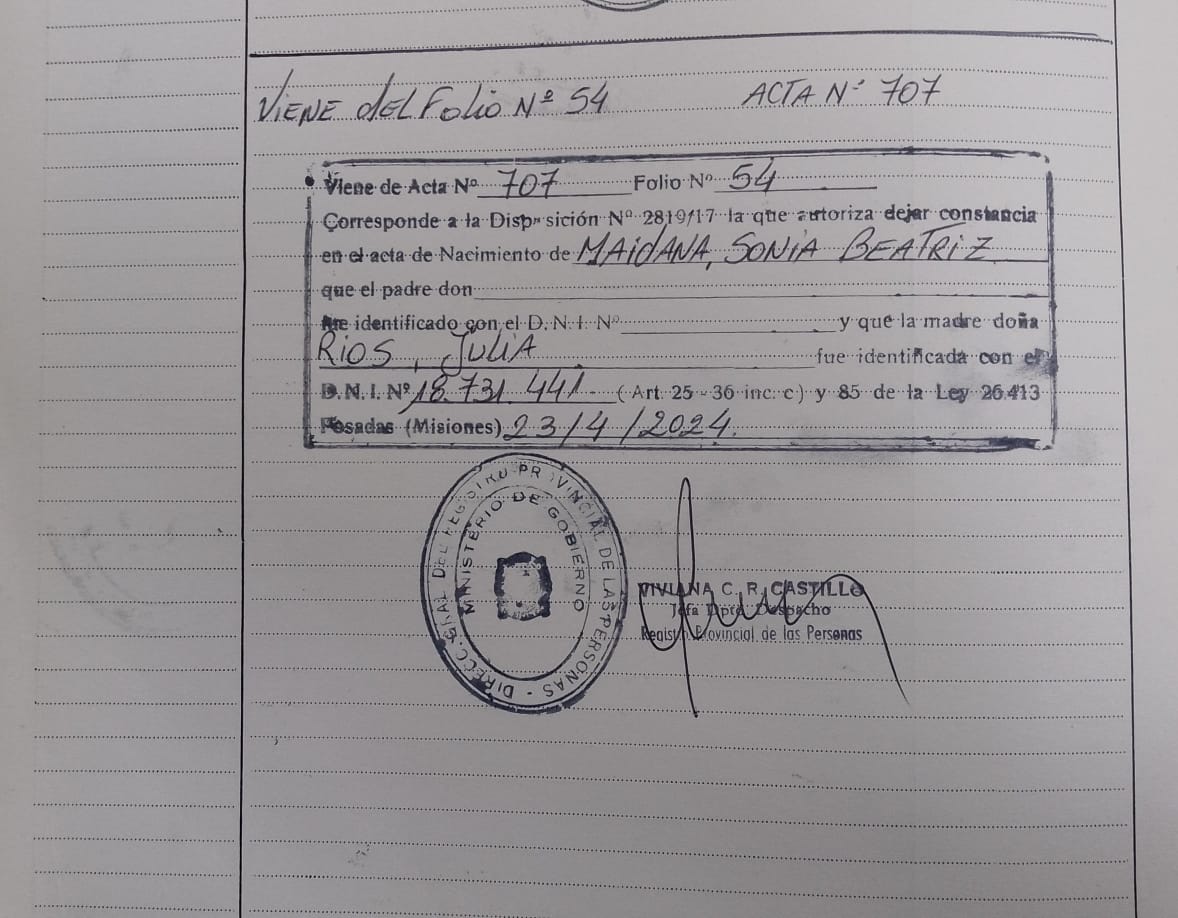 VIENE dEL Folio Nº 54 ACTA Nº 707
Viene de Acta Nº 707 Folio Nº 54
Corresponde a la Disposición Nº 2819/17 la que autoriza dejar constancia
en el acta de Nacimiento de MAIDANA, SONIA BEATRIZ
que el padre don
fue identificado con el D. N. I. Nº y que la madre doña
RIOS, JULIA fue identificada con el
D. N. I. Nº 18.731.441 ( Art. 25 - 36 inc. c ) y 85 de la Ley 26.413
Posadas (Misiones) 23/4/2024.
DIRECC. GRAL DEL REGISTRO PROVINCIAL DE LAS PERSONAS -
MINISTERIO DE GOBIERNO
VIVIANA C. R. CASTILLO
Jefa Dpto. Despacho
Registro Provincial de las Personas